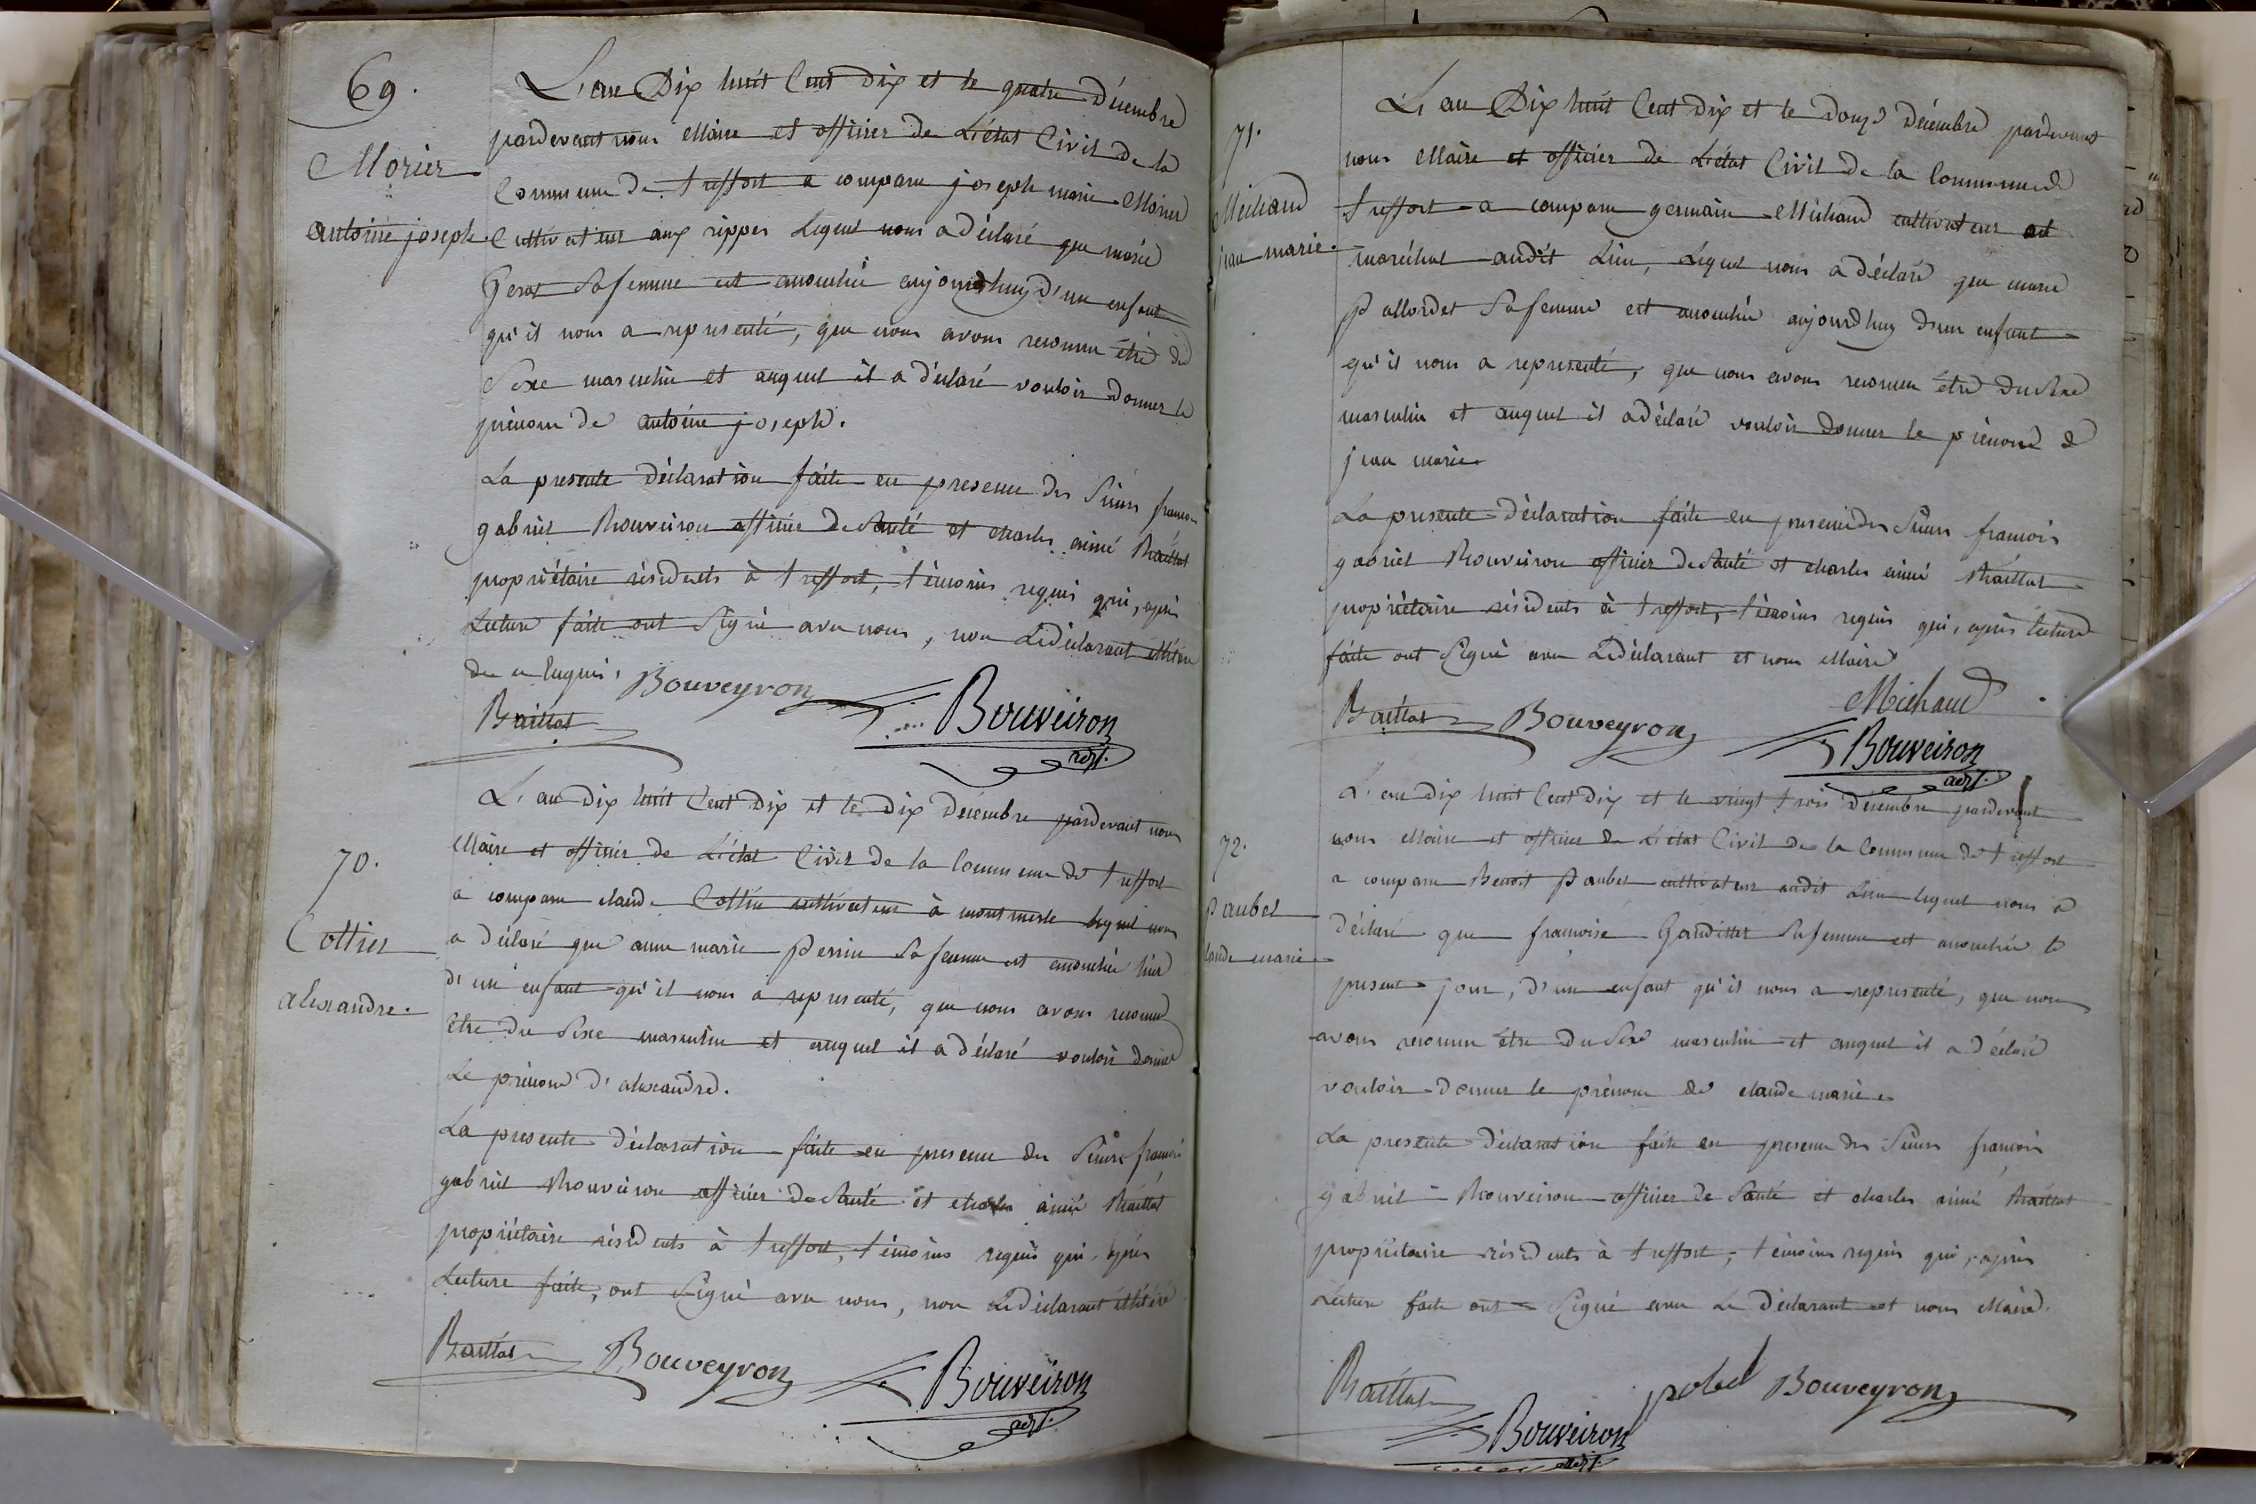 69.
Morier
antoine joseph.
L'an Dix huit Cent Dix et le quatre Décembre
pardevant nous Maire et officier de L'état Civil de la
Commune de treffort a comparu joseph marie Morier
Cultivateur aux rippes Lequel nous a déclaré que marie
Sa femme est accouchée aujourdhuy d'un enfant
qu'il nous a representé, que nous avons reconnu être du
Sexe masculin et auquel il a déclaré vouloir Donner le
prénom de antoine joseph.
La presente Déclaration faite en presence des Sieurs francois
gabriel Bouveiron officier de Santé et charles aimé Baillat
propriétaire résidents à treffort, témoins requis qui, après
Lecture faite ont Signé avec nous, non Le déclarant illitéré
de ce Enquis.
Bouveyron
Baillat
Bouveiron
adjt.
70.
Cottier
alexandre.
L'an dix huit Cent Dix et le dix Décembre pardevant nous
Maire et officier de L'état Civil de la Commune de treffort
a comparu claude Cottier cultivateur à montmerle lequel nous
a déclaré que anne marie Perrin Sa femme est accouchée hier
d'un enfant qu'il nous a representé, que nous avons reconnu
être du Sexe masculin et auquel il a déclaré vouloir donner
Le prénom d'alexandre.
La presente déclaration faite en presence des Sieurs francois
gabriel Bouveiron officier de Santé et charles aimé Baillat
propriétaire résidents à treffort, témoins requis qui, après
Lecture faite, ont Signé avec nous, non Le déclarant illitéré
Baillat
Bouveyron
Bouveiron
adjt.
71.
Michaud
jean marie.
L'an Dix huit Cent Dix et le douze Décembre pardevant
nous Maire et officier de L'état Civil de la Commune de
treffort a comparu germain Michaud cultivateur et
maréchal audit Lieu, Lequel nous a déclaré que marie
Pallordet Sa femme est accouchée aujourdhuy d'un enfant
qu'il nous a representé, que nous avons reconnu être du Sexe
masculin et auquel il a déclaré vouloir donner le prénom de
jean marie
La presente déclaration faite en presence des Sieurs francois
gabriel Bouveiron officier de Santé et charles aimé Baillat
propriétaire résidents à treffort, témoins requis qui, après lecture
faite ont Signé avec Le déclarant et nous Maire
Michaud
Baillat
Bouveyron
Bouveiron
adjt.
72.
Paubel
claude marie
L'an dix huit Cent Dix et le vingt trois décembre pardevant
nous Maire et officier de L'état Civil de la Commune de treffort
a comparu Benoit Paubel cultivateur audit Lieu lequel nous a
déclaré que francoise Sa femme est accouchée le
present jour, d'un enfant qu'il nous a representé, que nous
avons reconnu être du Sexe masculin et auquel il a déclaré
vouloir donner le prénom de claude marie
La presente déclaration faite en presence des Sieurs francois
gabriel Bouveiron officier de Santé et charles aimé Baillat
propriétaire résidents à treffort, témoins requis qui, après
Lecture faite ont Signé avec Le déclarant et nous Maire.
Baillat
pobel
Bouveyron
Bouveiron
adjt.